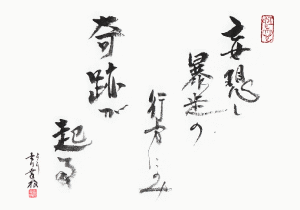 妄想し
暴走の
行方にのみ
奇跡が
起る